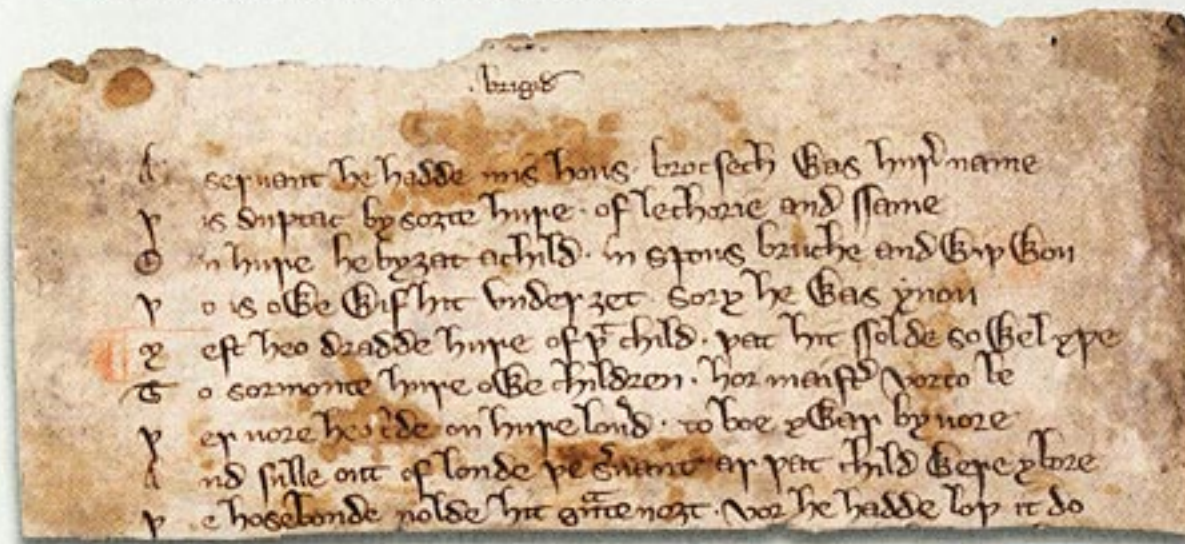 brigid
A seruant he hadde in is hous · brocsech was hure name
Þ is duptac by soȝte hure · of lechorie and ssame
O n hure he byȝat a child · in spous bruche and wiþ wou
Þ o is owe wif hit vnderȝet · sory he was ynou
est heo dradde hure of þt child · þat hit ssolde so wel yþe
T o sormonte hure owe children · hor maistr vorto be
Þ er uore he on hure loud · to boe ywar byuore
A nd sulle out of londe þe suant ar þat child were ybore
Þ e hosebonde nolde hit gnte noȝt · vor he hadde loþ it do